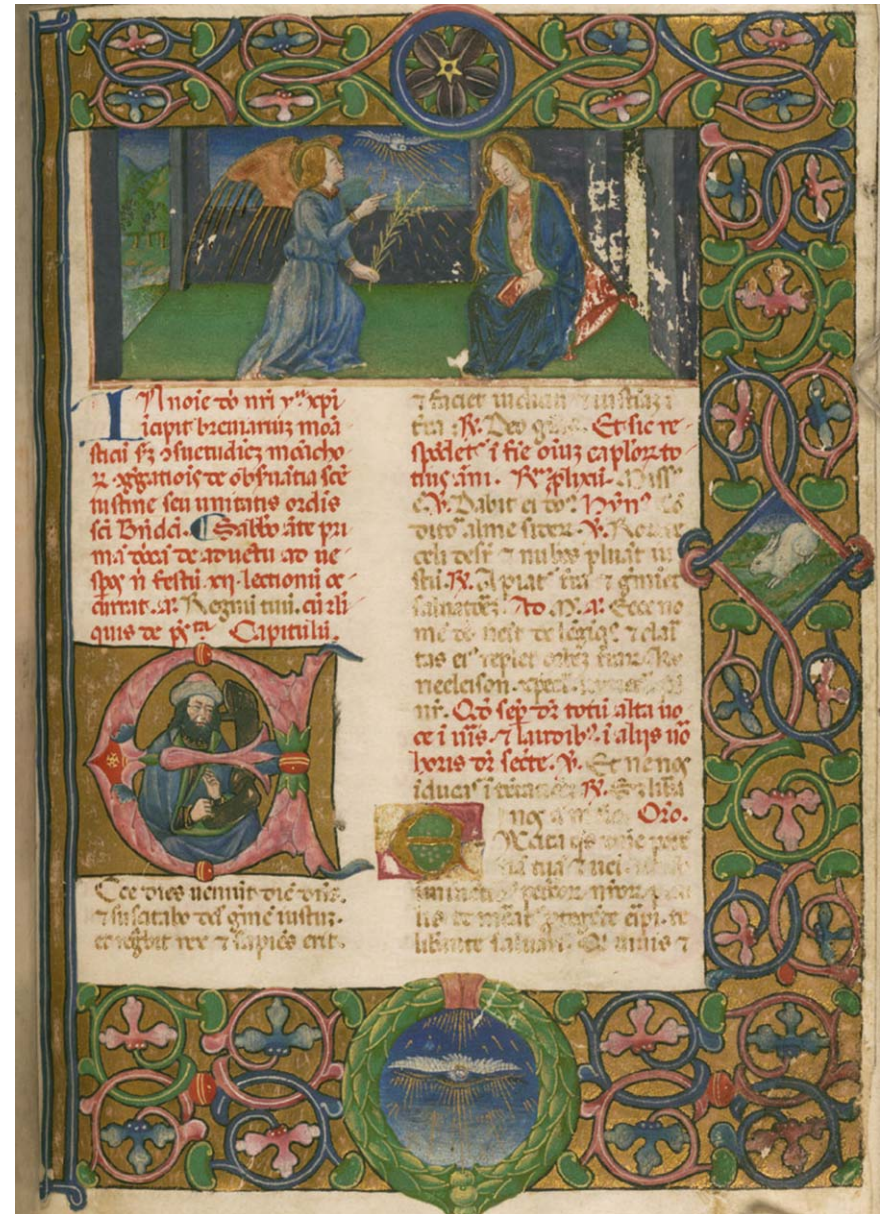 IN noie dō nri yħu xpi
icipit breuiariuz moa
sticū sz ↄsuetudiez moacho
ꝝ ↄgregatiōis de obfuātia scē
iustine seu unitatis ordis
sci Bndci. Sabbo ante pri
ma dcā de aduētu ad ue
spas n festū xij lectionū oc
currat. a. Regnū tuū. cū rli
quis de ps. Capitulū.
Ecce dies ueniūt dic dns.
⁊ suscitabo dd gmē iustuz.
et regbit rex ⁊ sapiēs erit.
⁊ faciet iudiciū ⁊ iustiaz i
tra. R. Deo gras. Et sic re
spōdet i fie oiuz caplorz to
tius ani. R. plixū.
V. Dabit ei dns Hyn Cō
ditor alme siderz. V. Rorate
celi desr ⁊ nubes pluāt iu
stū. R. Apiat tra ⁊ gmiet
saluatorez. Ad M. a. Ecce no
me dō uēit de lōgiqo ⁊ clari
tas eius replet orbez trarz
neeleison. xpel.
nr. Qd sep dr totū alta uo
ce i uris ⁊ laudibz. i aliis uo
horis dr secrete. V. Et ne nos
iducas i tētatiōez R. Sz libā
nos a Oro.
Excita qs dne potē
tiā tuā ⁊ uei
iminētibz peccorz nrorz pcu
lis te mereāt ptegēte eripi. te
libante saluari. Qi uiuis ⁊